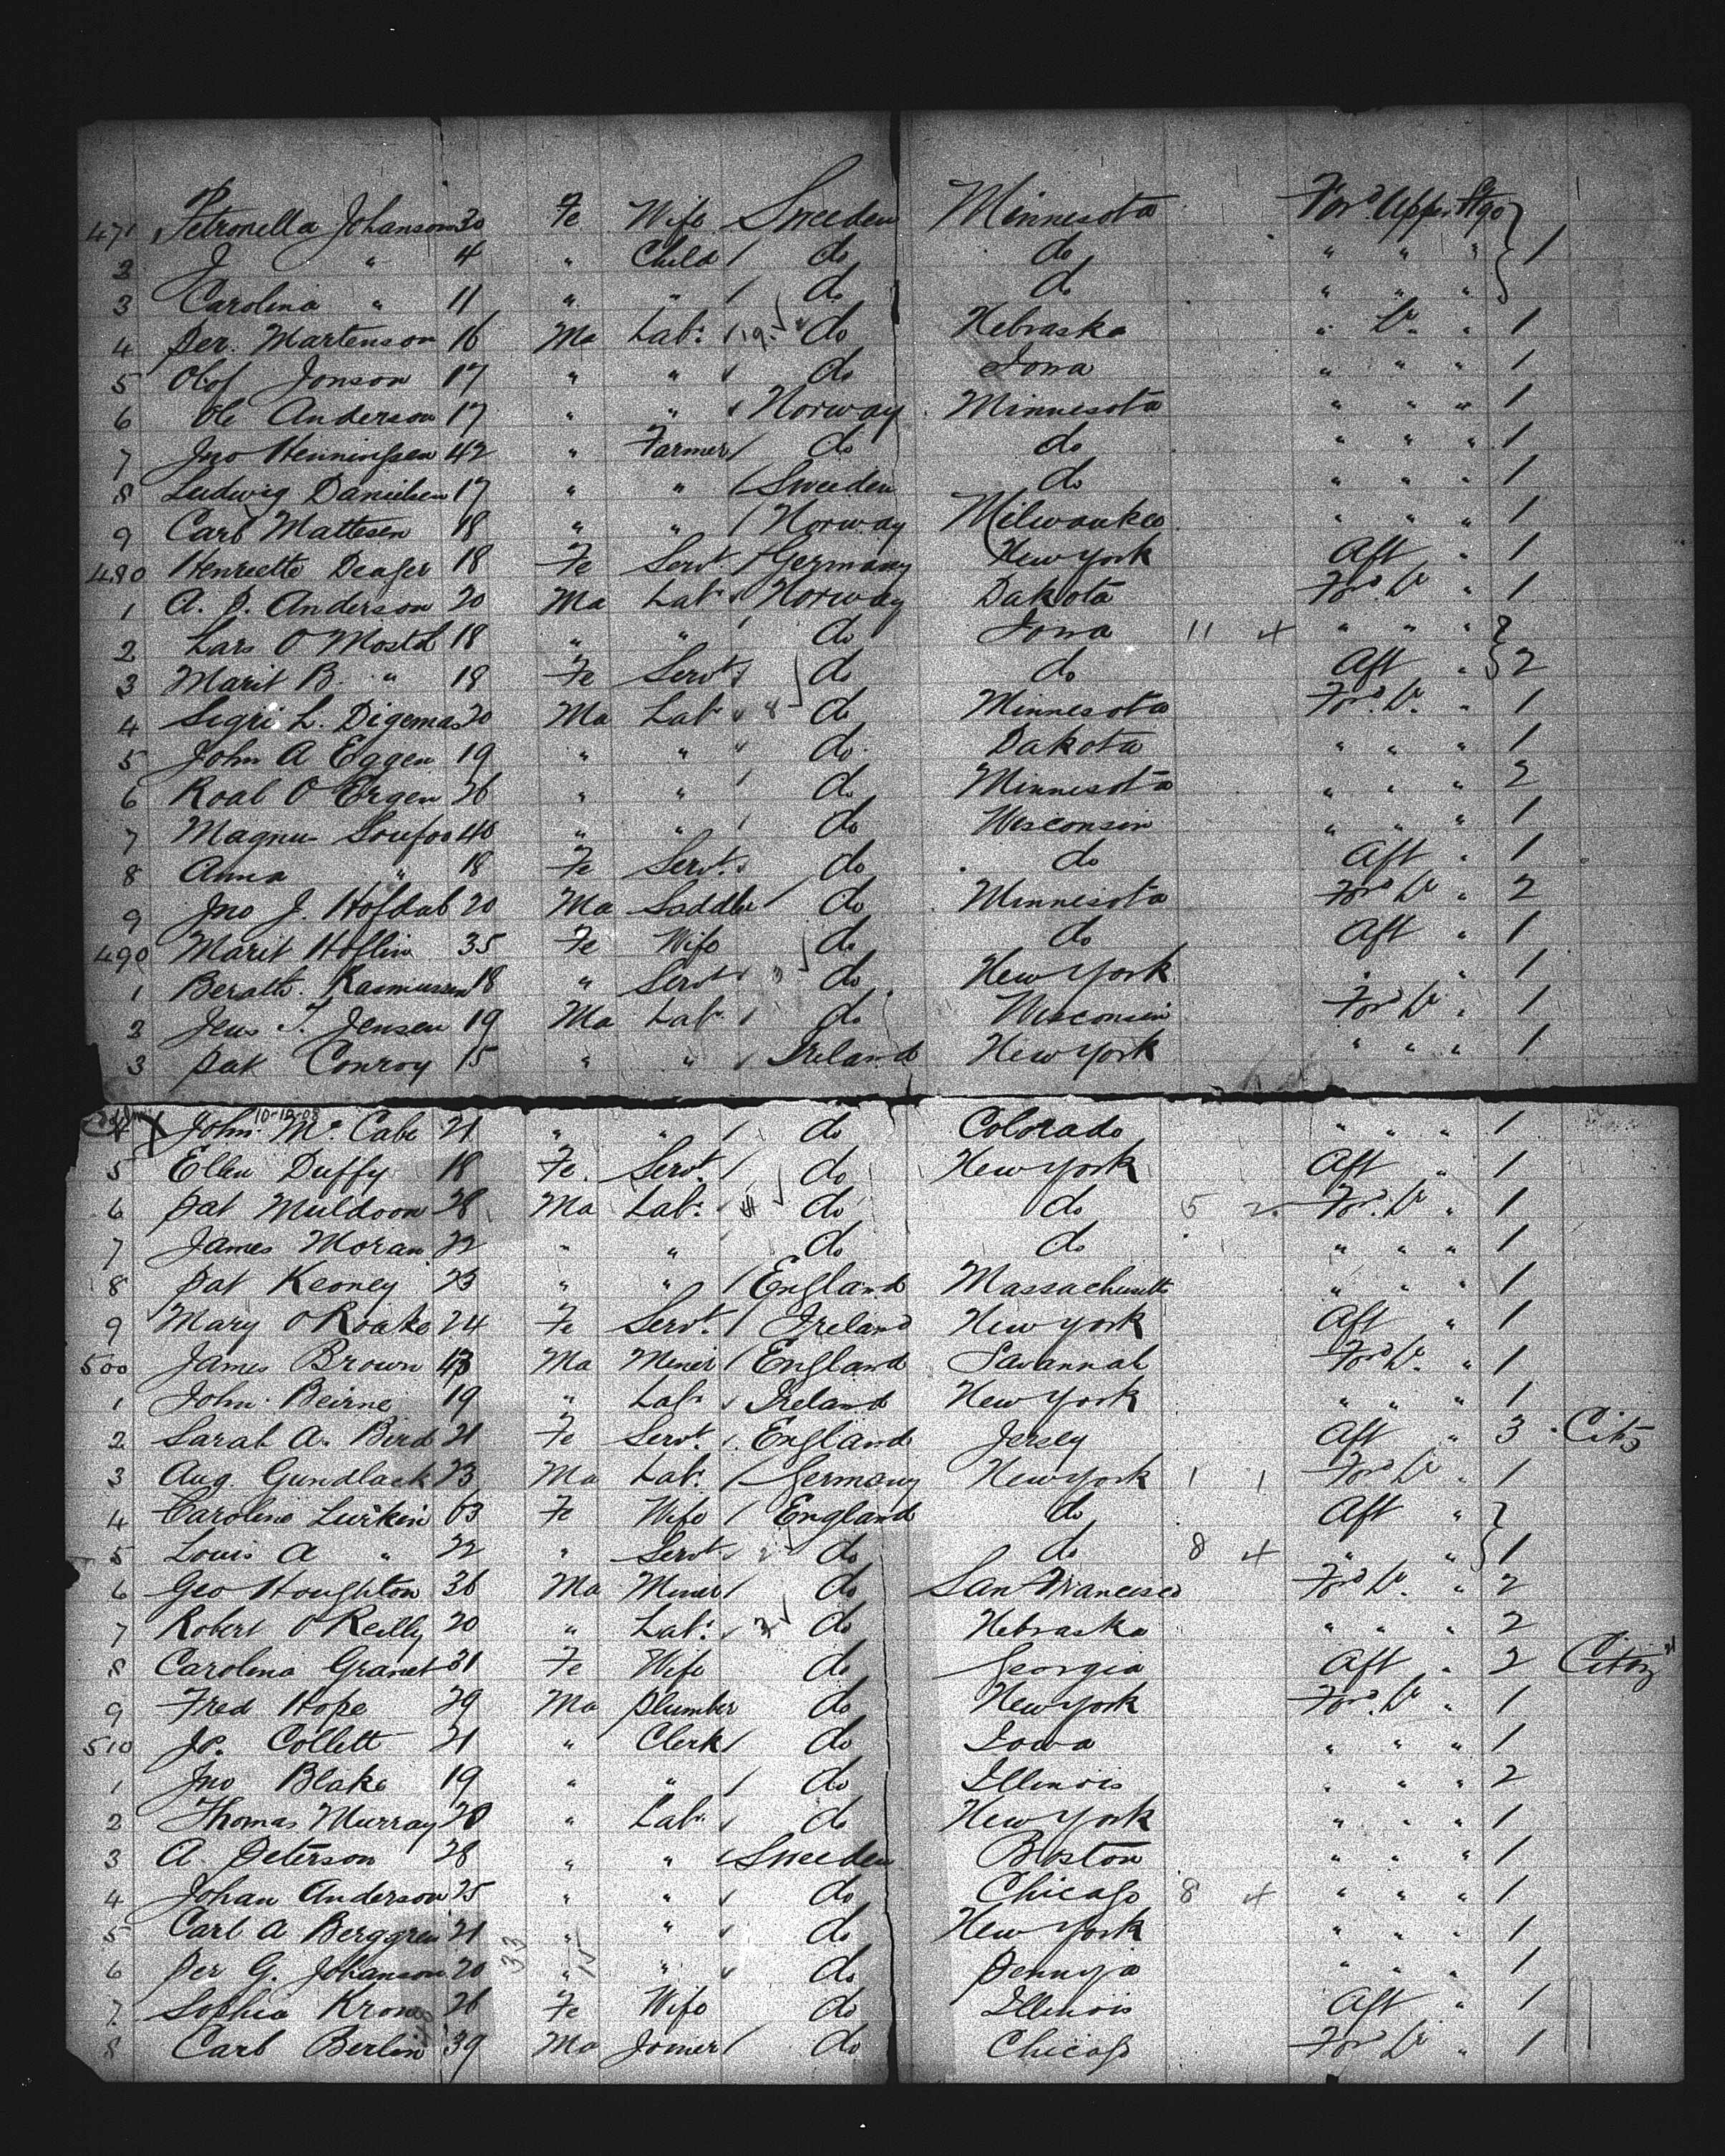 471 Petronella Johanson 30 Fe Wife Sweeden Minnesota For'd Upper Stge
2 J " 4 " Child / do do " " " } 1
3 Carolina " 11 " " / do do " " "
4 Per. Martenson 16 Ma Labr. 19 do Nebraska " Lr. " 1
5 Olof Jonson 17 " " do Iowa " " " 1
6 Ole Anderson 17 " " Norway Minnesota " " " 1
7 Jno Henningsen 42 " Farmer / do do " " " 1
8 Ludwig Danielsen 17 " " / Sweeden do " " " 1
9 Carl Mattesen 18 " " / Norway Milwaukee " " " 1
480 Henriette 18 Fe Servt / Germany New York Aft " 1
1 A. P. Anderson 20 Ma Labr Norway Dakota For'd Lr " 1
2 Lars O 18 " " / do Iowa 11 4 " " " }
3 Marit B. " 18 Fe Servt do do Aft " } 2
4 L. Digemas 20 Ma Labr 8 do Minnesota For'd Lr. " 1
5 John A Eggen 19 " " do Dakota " " " 1
6 Roal O Ergen 26 " " / do Minnesota " " " 2
7 Magnus 40 " " / do Wisconsin " " " 1
8 Anna " 18 Fe Servt. do do Aft " 1
9 Jno J. Hofdal 20 Ma Saddler / do Minnesota For'd Lr " 2
490 Marit Hoflin 35 Fe Wife do do Aft " 1
1 Rasmussen 18 " Servt 3 do New York " " 1
2 Jens T. Jensen 19 Ma Labr / do Wisconsin For'd Lr " 1
3 Pat Conroy 15 " " / Ireland New York " " " 1
10-12-08
4 X John Mc Cabe 21 " " / do Colorado " " " 1
5 Ellen Duffy 18 Fe. Servt. / do New York Aft " 1
6 Pat Muldoon 28 Ma Labr. do do 5 2 For'd. Lr " 1
7 James Moran 22 " " do do " " " 1
8 Pat Keoney 23 " " / England Massachusetts " " " 1
9 Mary O'Roake 24 Fe Servt. / Ireland New York Aft " 1
500 James Brown 43 Ma Miner / England Savannah For'd Lr. " 1
1 John Beirne 19 " Labr Ireland New York " " " 1
2 Sarah A. Bird 21 Fe Servt. England Jersey Aft " 3 Citz
3 Aug. Gundlack 23 Ma Labr. / Germany New York 1 1 For'd Lr " 1
4 Caroline Lurkin 63 Fe Wife / England do Aft " }
5 Louis A " 22 " Servt 2 do do 8 4 " " } 1
6 Geo Houghton 36 Ma Miner / do San Francisco For'd Lr. " 2
7 Robert O'Reilly 20 " Labr. do Nebraska " " " 2
8 Carolina Granet 31 Fe Wife do Georgia Aft " 2 Citzn
9 Fred Hope 29 Ma Plumber do New York For'd. Lr " 1
510 Jo. Collett 21 " Clerk / do Iowa " " " 1
1 Jno Blake 19 " " / do Illinois " " " 2
2 Thomas Murray 20 " Labr do New York " " " 1
3 A Peterson 28 " " Sweeden Boston " " " 1
4 Johan Anderson 25 " " do Chicago 8 4 " " " 1
5 Carl A Berggren 21 " " do New York " " " 1
6 Per G. Johanson 20 33 " 15 " do Pennya " " " 1
7 Sophia Krone 26 Fe Wife do Illinois Aft " 1
8 Carl Berlin 39 Ma Joiner / do Chicago For'd Lr " 1